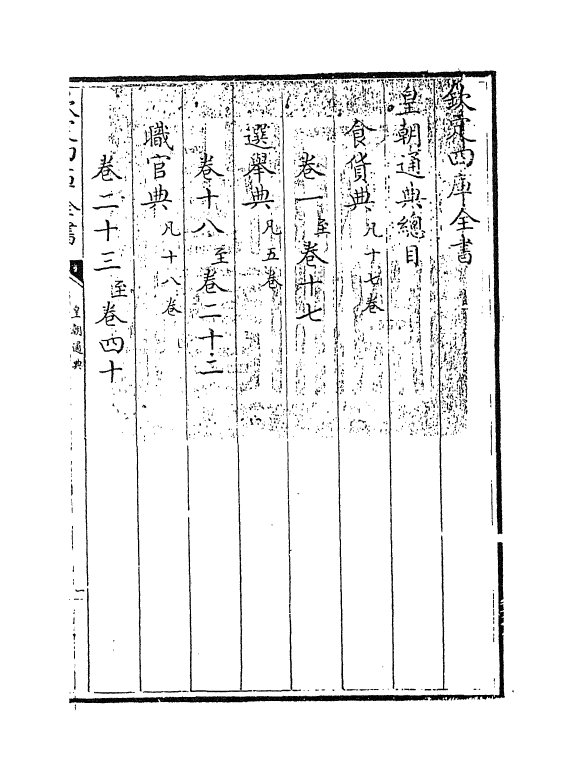 欽定四庫全書
皇朝通典總目
食貨典凡十七卷
卷一至卷十七
選舉典凡五卷
卷十八至卷二十二
職官典凡十八卷
卷二十三至卷四十
皇朝通典